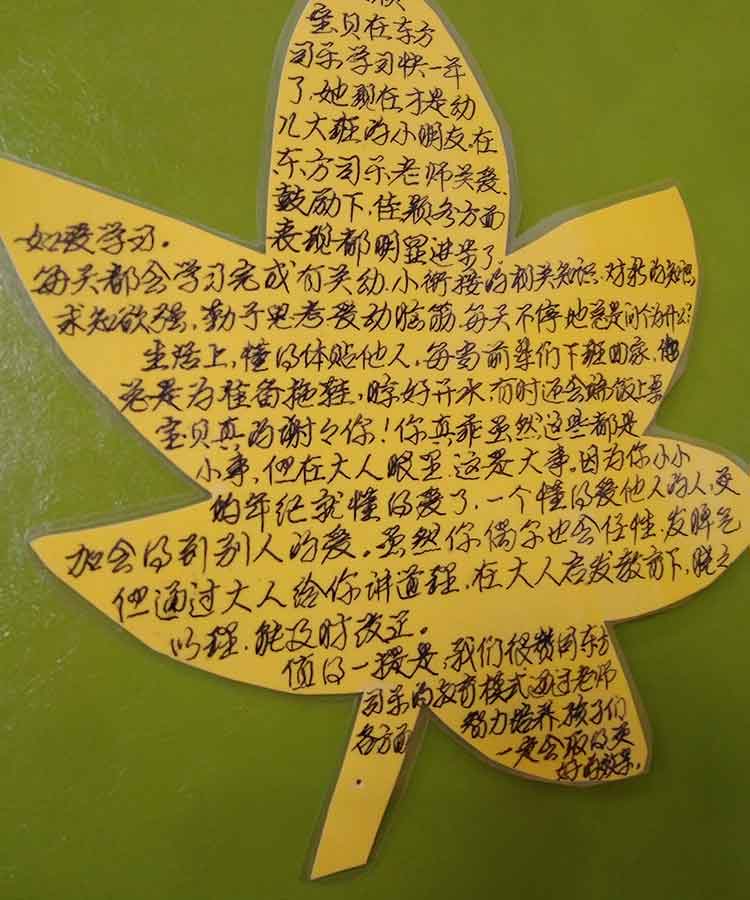 宝贝在东方
司乐学习快一年
了,她现在才是幼
儿大班的小朋友,在
东方司乐老师关爱、
鼓励下,佳颖各方面
表现都明显进步了。
如爱学习。
每天都会学习完成有关幼、小衔接的相关知识,对新的知识
求知欲强,勤于思考爱动脑筋,每天不停地总是问个为什么?
生活上,懂的体贴他人,每当前辈们下班回家,她
总是为准备拖鞋,晾好开水,有时还会端饭上桌
宝贝真的谢々你!你真乖虽然这些都是
小事,但在大人眼里这是大事。因为你小小
的年纪就懂的爱了,一个懂的爱他人的人,更
加会的到别人的爱。虽然你偶尔也会任性、发脾气
但通过大人给你讲道理,在大人启发教育下,晓之
以理,能及时改正。
值的一提是,我们很赞同东方
司乐的教育模式,通过老师
各方面
努力培养,孩子们
一定会取的更
好的效果。